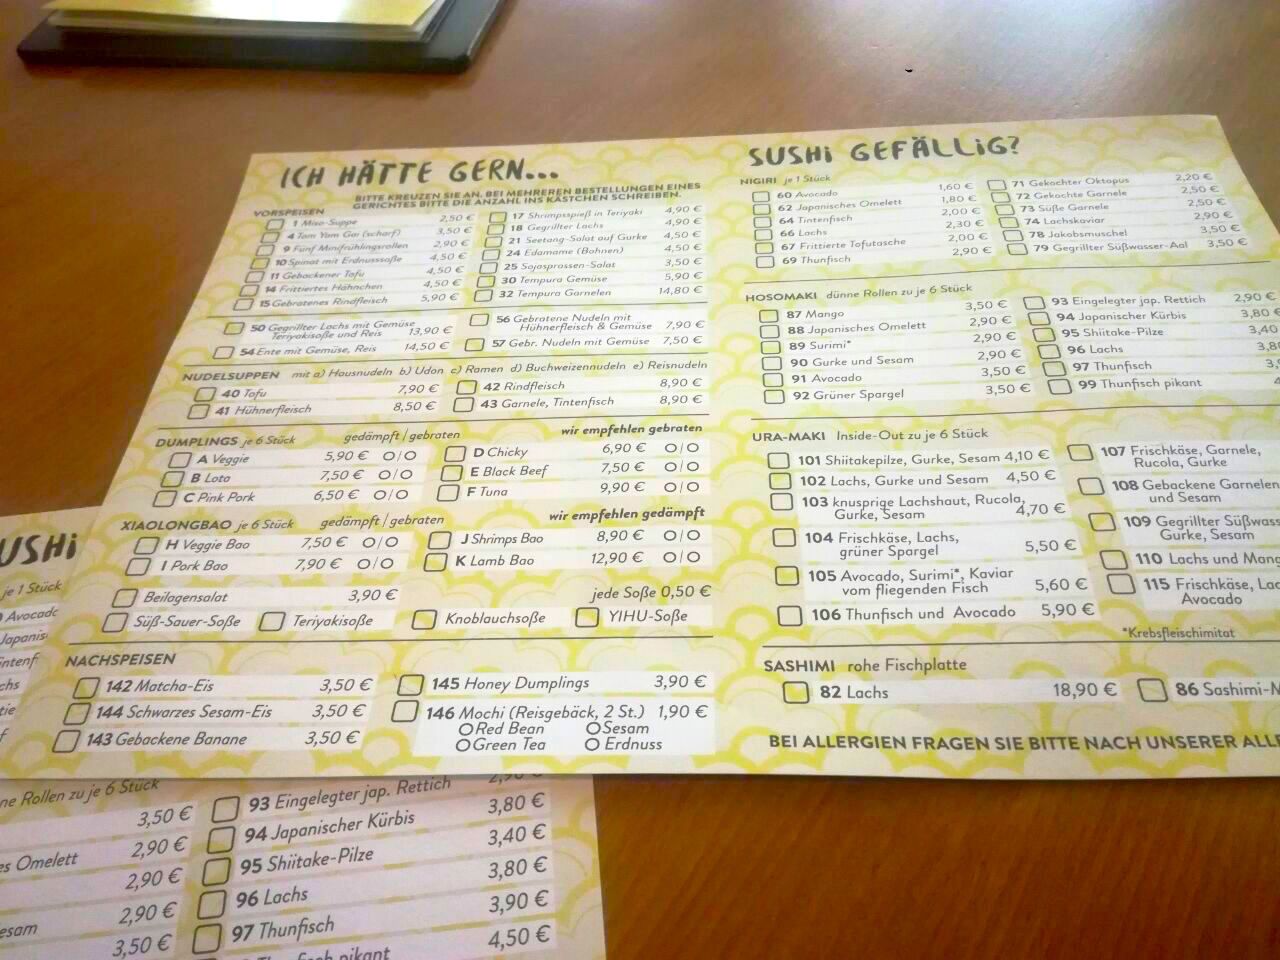 ICH HÄTTE GERN...
BITTE KREUZEN SIE AN. BEI MEHREREN BESTELLUNGEN EINES
GERICHTES BITTE DIE ANZAHL INS KÄSTCHEN SCHREIBEN.
VORSPEISEN
1 Miso-Suppe 2,50 €
4 Tom Yam Gai (scharf) 3,50 €
9 Fünf Minifrühlingsrollen 2,90 €
10 Spinat mit Erdnusssoße 4,50 €
11 Gebackener Tofu 4,50 €
14 Frittiertes Hähnchen 4,50 €
15 Gebratenes Rindfleisch 5,90 €
17 Shrimpsspieß in Teriyaki 4,90 €
18 Gegrillter Lachs 4,90 €
21 Seetang-Salat auf Gurke 4,50 €
24 Edamame (Bohnen) 4,50 €
25 Sojasprossen-Salat 3,50 €
30 Tempura Gemüse 5,90 €
32 Tempura Garnelen 14,80 €
50 Gegrillter Lachs mit Gemüse
Teriyakisoße und Reis 13,90 €
54 Ente mit Gemüse, Reis 14,50 €
56 Gebratene Nudeln mit
Hühnerfleisch & Gemüse 7,90 €
57 Gebr. Nudeln mit Gemüse 7,50 €
NUDELSUPPEN mit a) Hausnudeln b) Udon c) Ramen d) Buchweizennudeln e) Reisnudeln
40 Tofu 7,90 €
41 Hühnerfleisch 8,50 €
42 Rindfleisch 8,90 €
43 Garnele, Tintenfisch 8,90 €
DUMPLINGS je 6 Stück gedämpft / gebraten wir empfehlen gebraten
A Veggie 5,90 € O/O
B Lota 7,50 € O/O
C Pink Pork 6,50 € O/O
D Chicky 6,90 € O/O
E Black Beef 7,50 € O/O
F Tuna 9,90 € O/O
XIAOLONGBAO je 6 Stück gedämpft / gebraten wir empfehlen gedämpft
H Veggie Bao 7,50 € O/O
I Pork Bao 7,90 € O/O
J Shrimps Bao 8,90 € O/O
K Lamb Bao 12,90 € O/O
Beilagensalat 3,90 € jede Soße 0,50 €
Süß-Sauer-Soße Teriyakisoße Knoblauchsoße YIHU-Soße
NACHSPEISEN
142 Matcha-Eis 3,50 €
144 Schwarzes Sesam-Eis 3,50 €
143 Gebackene Banane 3,50 €
145 Honey Dumplings 3,90 €
146 Mochi (Reisgebäck, 2 St.) 1,90 €
Red Bean Sesam
Green Tea Erdnuss
SUSHI GEFÄLLIG?
NIGIRI je 1 Stück
60 Avocado 1,60 €
62 Japanisches Omelett 1,80 €
64 Tintenfisch 2,00 €
66 Lachs 2,30 €
67 Frittierte Tofutasche 2,00 €
69 Thunfisch 2,90 €
71 Gekochter Oktopus 2,20 €
72 Gekochte Garnele 2,50 €
73 Süße Garnele 2,50 €
74 Lachskaviar 2,90 €
78 Jakobsmuschel 3,50 €
79 Gegrillter Süßwasser-Aal 3,50 €
HOSOMAKI dünne Rollen zu je 6 Stück
87 Mango 3,50 €
88 Japanisches Omelett 2,90 €
89 Surimi* 2,90 €
90 Gurke und Sesam 2,90 €
91 Avocado 3,50 €
92 Grüner Spargel 3,50 €
93 Eingelegter jap. Rettich 2,90 €
94 Japanischer Kürbis 3,80 €
95 Shiitake-Pilze 3,40
96 Lachs 3,8
97 Thunfisch 3,
99 Thunfisch pikant 4
URA-MAKI Inside-Out zu je 6 Stück
101 Shiitakepilze, Gurke, Sesam 4,10 €
102 Lachs, Gurke und Sesam 4,50 €
103 knusprige Lachshaut, Rucola,
Gurke, Sesam 4,70 €
104 Frischkäse, Lachs,
grüner Spargel 5,50 €
105 Avocado, Surimi*, Kaviar
vom fliegenden Fisch 5,60 €
106 Thunfisch und Avocado 5,90 €
107 Frischkäse, Garnele,
Rucola, Gurke
108 Gebackene Garnelen
und Sesam
109 Gegrillter Süßwass
Gurke, Sesam
110 Lachs und Mang
115 Frischkäse, Lac
Avocado
*Krebsfleischimitat
SASHIMI rohe Fischplatte
82 Lachs 18,90 €
86 Sashimi-M
BEI ALLERGIEN FRAGEN SIE BITTE NACH UNSERER ALLE
USHi
je 1 Stück
Avocado
Japanis
intenf
chs
tie
f
ne Rollen zu je 6 Stück
3,50 €
es Omelett 2,90 €
2,90 €
esam 2,90 €
3,50 €
93 Eingelegter jap. Rettich 2,90 €
94 Japanischer Kürbis 3,80 €
95 Shiitake-Pilze 3,40 €
96 Lachs 3,80 €
97 Thunfisch 3,90 €
Thunfisch pikant 4,50 €